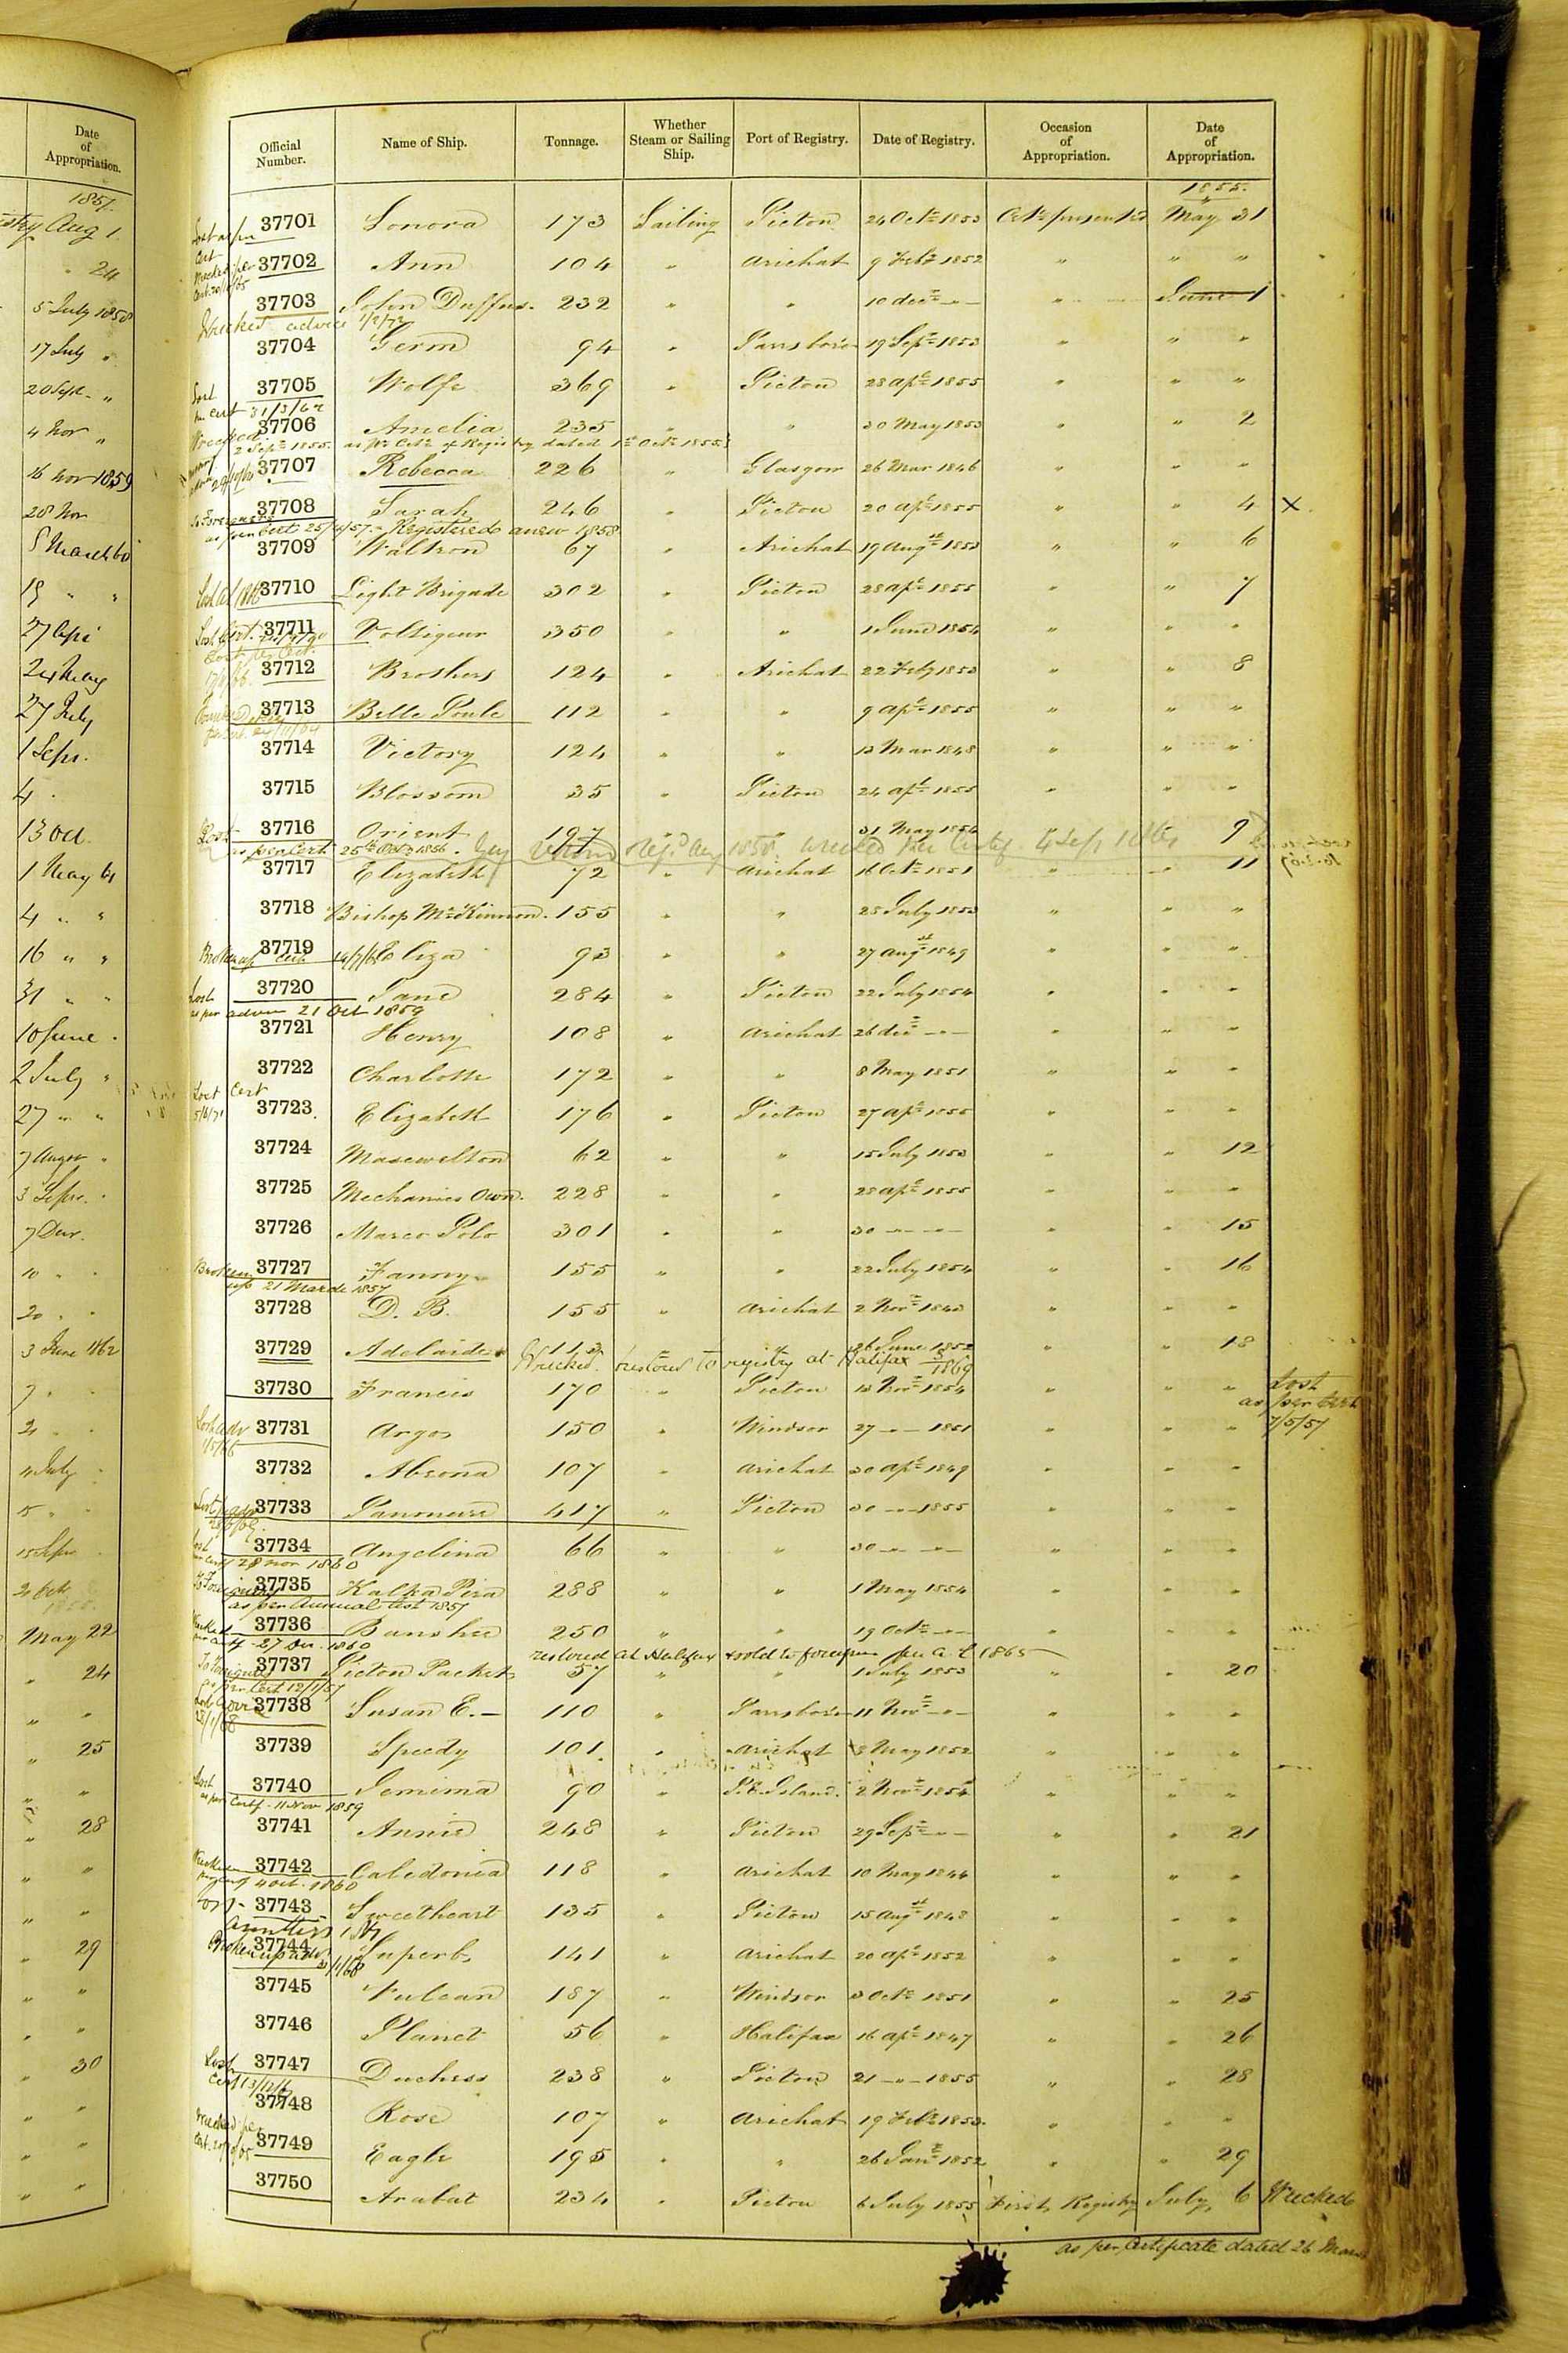 Date of Appropriation.
1857.
Aug 1.
" 24
5 July 1858
17 July "
20 Sept. "
4 Nov "
16 Nov 1859
28 Nov
8 March 60
19 " "
27 Apl
24 May
27 July
1 Sepr.
4 "
13 Oct.
1 May 61
4 " "
16 " "
31 " "
10 June "
2 July "
27 " "
7 Augst "
3 Sepr. "
7 Decr.
10 " "
20 " "
3 June 1862
7 " "
21 " "
4 July "
15 "
15 Sepr
2 Oct
1855.
May 22
" 24
" "
" 25
" "
" 28
" "
" "
" 29
" "
" "
" 30
" "
" "
" "
Official Number. Name of Ship. Tonnage. Whether Steam or Sailing Ship. Port of Registry. Date of Registry. Occasion of Appropriation. Date of Appropriation.
1855.
37701 Sonora 173 Sailing Pictou 24 Octr 1853 May 31
Lost as per Cert
37702 Ann 104 " Arichat 9 Feby 1852 " " "
Wrecked per Cert.
37703 John Duffus. 232 " " 10 Decr -"- " June 1
Wrecked advice 1/2/72
37704 Germ 94 " Parrsboro 19 Sepr 1853 " " "
37705 Wolfe 369 " Pictou 28 Apl 1855 " " "
Lost per Cert 31/3/62
37706 Amelia 235 " " 30 May 1853 " " 2
Wrecked 2 Sepr 1855. as pr Certe of Registry dated 1st Octr 1855
37707 Rebecca 226 " Glasgow 26 Mar 1846 " " "
37708 Sarah 246 " Pictou 20 Apl 1855 " " 4 X
To Foreigners as per Cert 25/4/57. Registered anew 1858
37709 Waltron 67 " Arichat 19 Augst 1853 " " 6
37710 Light Brigade 302 " Pictou 28 Apl 1855 " " 7
37711 Voltigeur 350 " " 1 June 1854 " " "
Lost Cert.
Lost per Cert.
37712 Brothers 124 " Arichat 22 Feby 1853 " " 8
37713 Belle Poule 112 " " 9 Apl 1855 " " "
37714 Victory 124 " " 13 Mar 1848 " " "
37715 Blossom 35 " Pictou 24 Apl 1855 " " "
37716 Orient 197 " " 31 May 1854 " " 9
Lost as per Cert 25th Octr 1856. wrecked per Certif. 4 Sep
37717 Elizabeth 72 " Arichat 16 Octr 1851 " " 11
37718 Bishop McKinnon. 155 " " 25 July 1853 " " "
37719 Eliza 93 " " 27 Augst 1849 " " "
Broken up Cert
37720 Jane 284 " Pictou 22 July 1854 " " "
Lost as per advice 21 Oct 1859
37721 Henry 108 " Arichat 26 Decr -"- " " "
37722 Charlotte 172 " " 8 May 1851 " " "
Lost Cert 5/6/71
37723 Elizabeth 176 " Pictou 27 Apl 1855 " " "
37724 Maxwelton 62 " " 15 July 1853 " " 12
37725 Mechanics Own. 228 " " 28 Apl 1855 " " "
37726 Marco Polo 301 " " 30 -"- -"- " " 15
37727 Fanny 155 " " 22 July 1854 " " 16
Broken up 21 March 1857
37728 D. B. 155 " Arichat 2 Novr 1843 " " "
37729 Adelaide 113 " " 26 June 1852 " " 18
Wrecked. restored to registry at Halifax 1869
37730 Francis 170 " Pictou 13 Novr 1854 " " "
Lost as per Cert 7/5/57
37731 Argo 150 " Windsor 27 -"- 1851 " " "
Lost adv 1/5/66
37732 Abeona 107 " Arichat 30 Apl 1849 " " "
37733 417 " Pictou 30 -"- 1855 " " "
37734 Angelina 66 " " 30 -"- -"- " " "
Lost per Certf 28 Nov 1860
37735 288 " " 1 May 1854 " " "
To Foreigners as per Annual List 1857
37736 Banshee 250 " " 19 Octr -"- " " "
Wrecked per Certf 27 Dec. 1860 restored at Halifax & sold to foreigners per A. L 1865
37737 Pictou Packet 57 " " 1 July 1853 " " 20
To Foreigners as per Cert 12/1/57
37738 Susan E. — 110 " Parrsboro 11 Novr -"- " " "
37739 Speedy 101 " Arichat 8 May 1852 " " "
37740 Jemima 90 " P.E. Island. 2 Novr 1854 " " "
Lost as per Certf. 11 Nov 1859
37741 Annie 248 " Pictou 29 Sepr -"- " " 21
37742 Caledonia 118 " Arichat 10 May 1844 " " "
Wrecked per Certf 4 Oct. 1860
37743 Sweetheart 135 " Pictou 15 Augst 1848 " " "
37744 Superb 141 " Arichat 20 Apl 1852 " " "
Broken up adv
37745 Vulcan 187 " Windsor 3 Octr 1851 " " 25
37746 Planet 56 " Halifax 16 Apl 1847 " " 26
37747 Duchess 238 " Pictou 21 -"- 1855 " " 28
Lost Cert
37748 Rose 107 " Arichat 19 Feby 1853 " " "
37749 Eagle 195 " " 26 Jany 1852 " " 29
Wrecked per Cert.
37750 Arabat 234 " Pictou 6 July 1855 First Registry July 6 Wrecked
as per Certificate dated 26 Mar